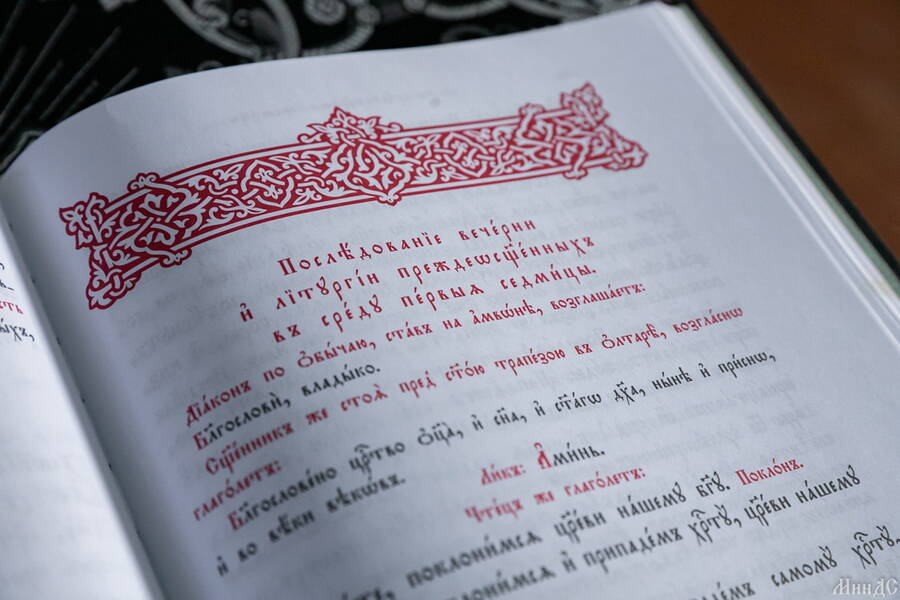 еть
ыхъ,
Послѣ́дованїе вече́рни
и҆ лїтꙋргі́и преждеѡсщ҃е́нныхъ
въ сре́дꙋ пе́рвыѧ седми́цы.
Дїа́конъ по ѻ҆бы́чаю, ста́въ на а҆мвѡ́нѣ, возглаша́етъ:
Бл҃гословѝ, влады́ко.
Сщ҃е́нникъ же стоѧ̀ пред̾ ст҃о́ю трапе́зою въ ѻ҆лтарѣ̀, возгла́снѡ
глаго́летъ:
Бл҃гослове́но црⷭ҇тво ѻ҆ц҃а̀, и҆ сн҃а, и҆ ст҃а́гѡ дх҃а, ны́нѣ и҆ при́снѡ,
и҆ во вѣ́ки вѣкѡ́въ.
Ли́къ: А҆ми́нь.
Чте́цъ же глаго́летъ:
поклони́мсѧ цр҃е́ви на́шемꙋ бг҃ꙋ. Покло́нъ.
и҆ припаде́мъ хрⷭ҇тꙋ̀, цр҃е́ви на́шемꙋ
самомꙋ̀ хрⷭ҇тꙋ̀,
МинДС